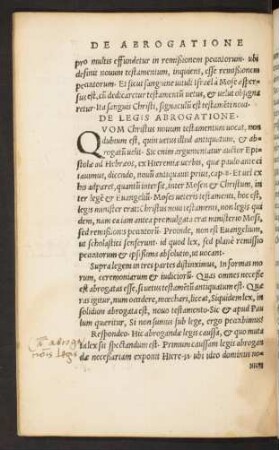 DE ABROGATIONE
pro multis effundetur in remißionem peccatorum. ubi
definit nouum testamentum, inquiens, esse remißionem
peccatorum. Et sicut sanguine uituli Israel à Mose asper-
sus est, cũ dedicaretur testamentũ uetus, & uelut obsigna
retur. Ita sanguis Christi, signaculũ est testamẽti noui.
DE LEGIS ABROGATIONE.
QVOM Christus nouum testamentum uocat, non
dubium est, quin uetus illud antiquatum, & ab-
rogatũ uelit. Sic enim argumentatur auctor Epi-
stolæ ad Hebræos, ex Hieremiæ uerbis, quæ paulo ante ci
tauimus, dicendo, nouũ antiquauit prius, cap. 8. Et uel ex
hoc adparet, quantũ intersit, inter Mosen & Christum, in
ter legẽ & Euangeliũ. Moses ueteris testamẽti, hoc est,
legis minister erat: Christus noui testamenti, non legis qui
dem, nam ea iam antea promulgata erat ministerio Mosi,
sed remißionis peccatorũ. Proinde, non est Euangelium,
ut scholastici senserunt, id quod lex, sed planè remißio
peccatorum & ipsißima absolutio, ut uocant.
Supra legem in tres partes distinximus, in formas mo
rum, ceremoniarum & iudiciorũ. Quas omneis necesse
est abrogatas esse, si uetus testamẽtũ antiquatum est. Quæ
ras igitur, num occidere, mœchari, liceat, Siquidem lex, in
solidum abrogata est, nouo testamento. Sic & apud Pau
lum quæritur, Si non sumus sub lege, ergo peccabimus?
Respondeo. Hic abrogandæ legis caussa, & quo muta
ta lex sit spectandum est. Primum caussam legis abrogan
dæ necessariam exponit Hiere. 31. ubi ideo dominus no-
uum
legis